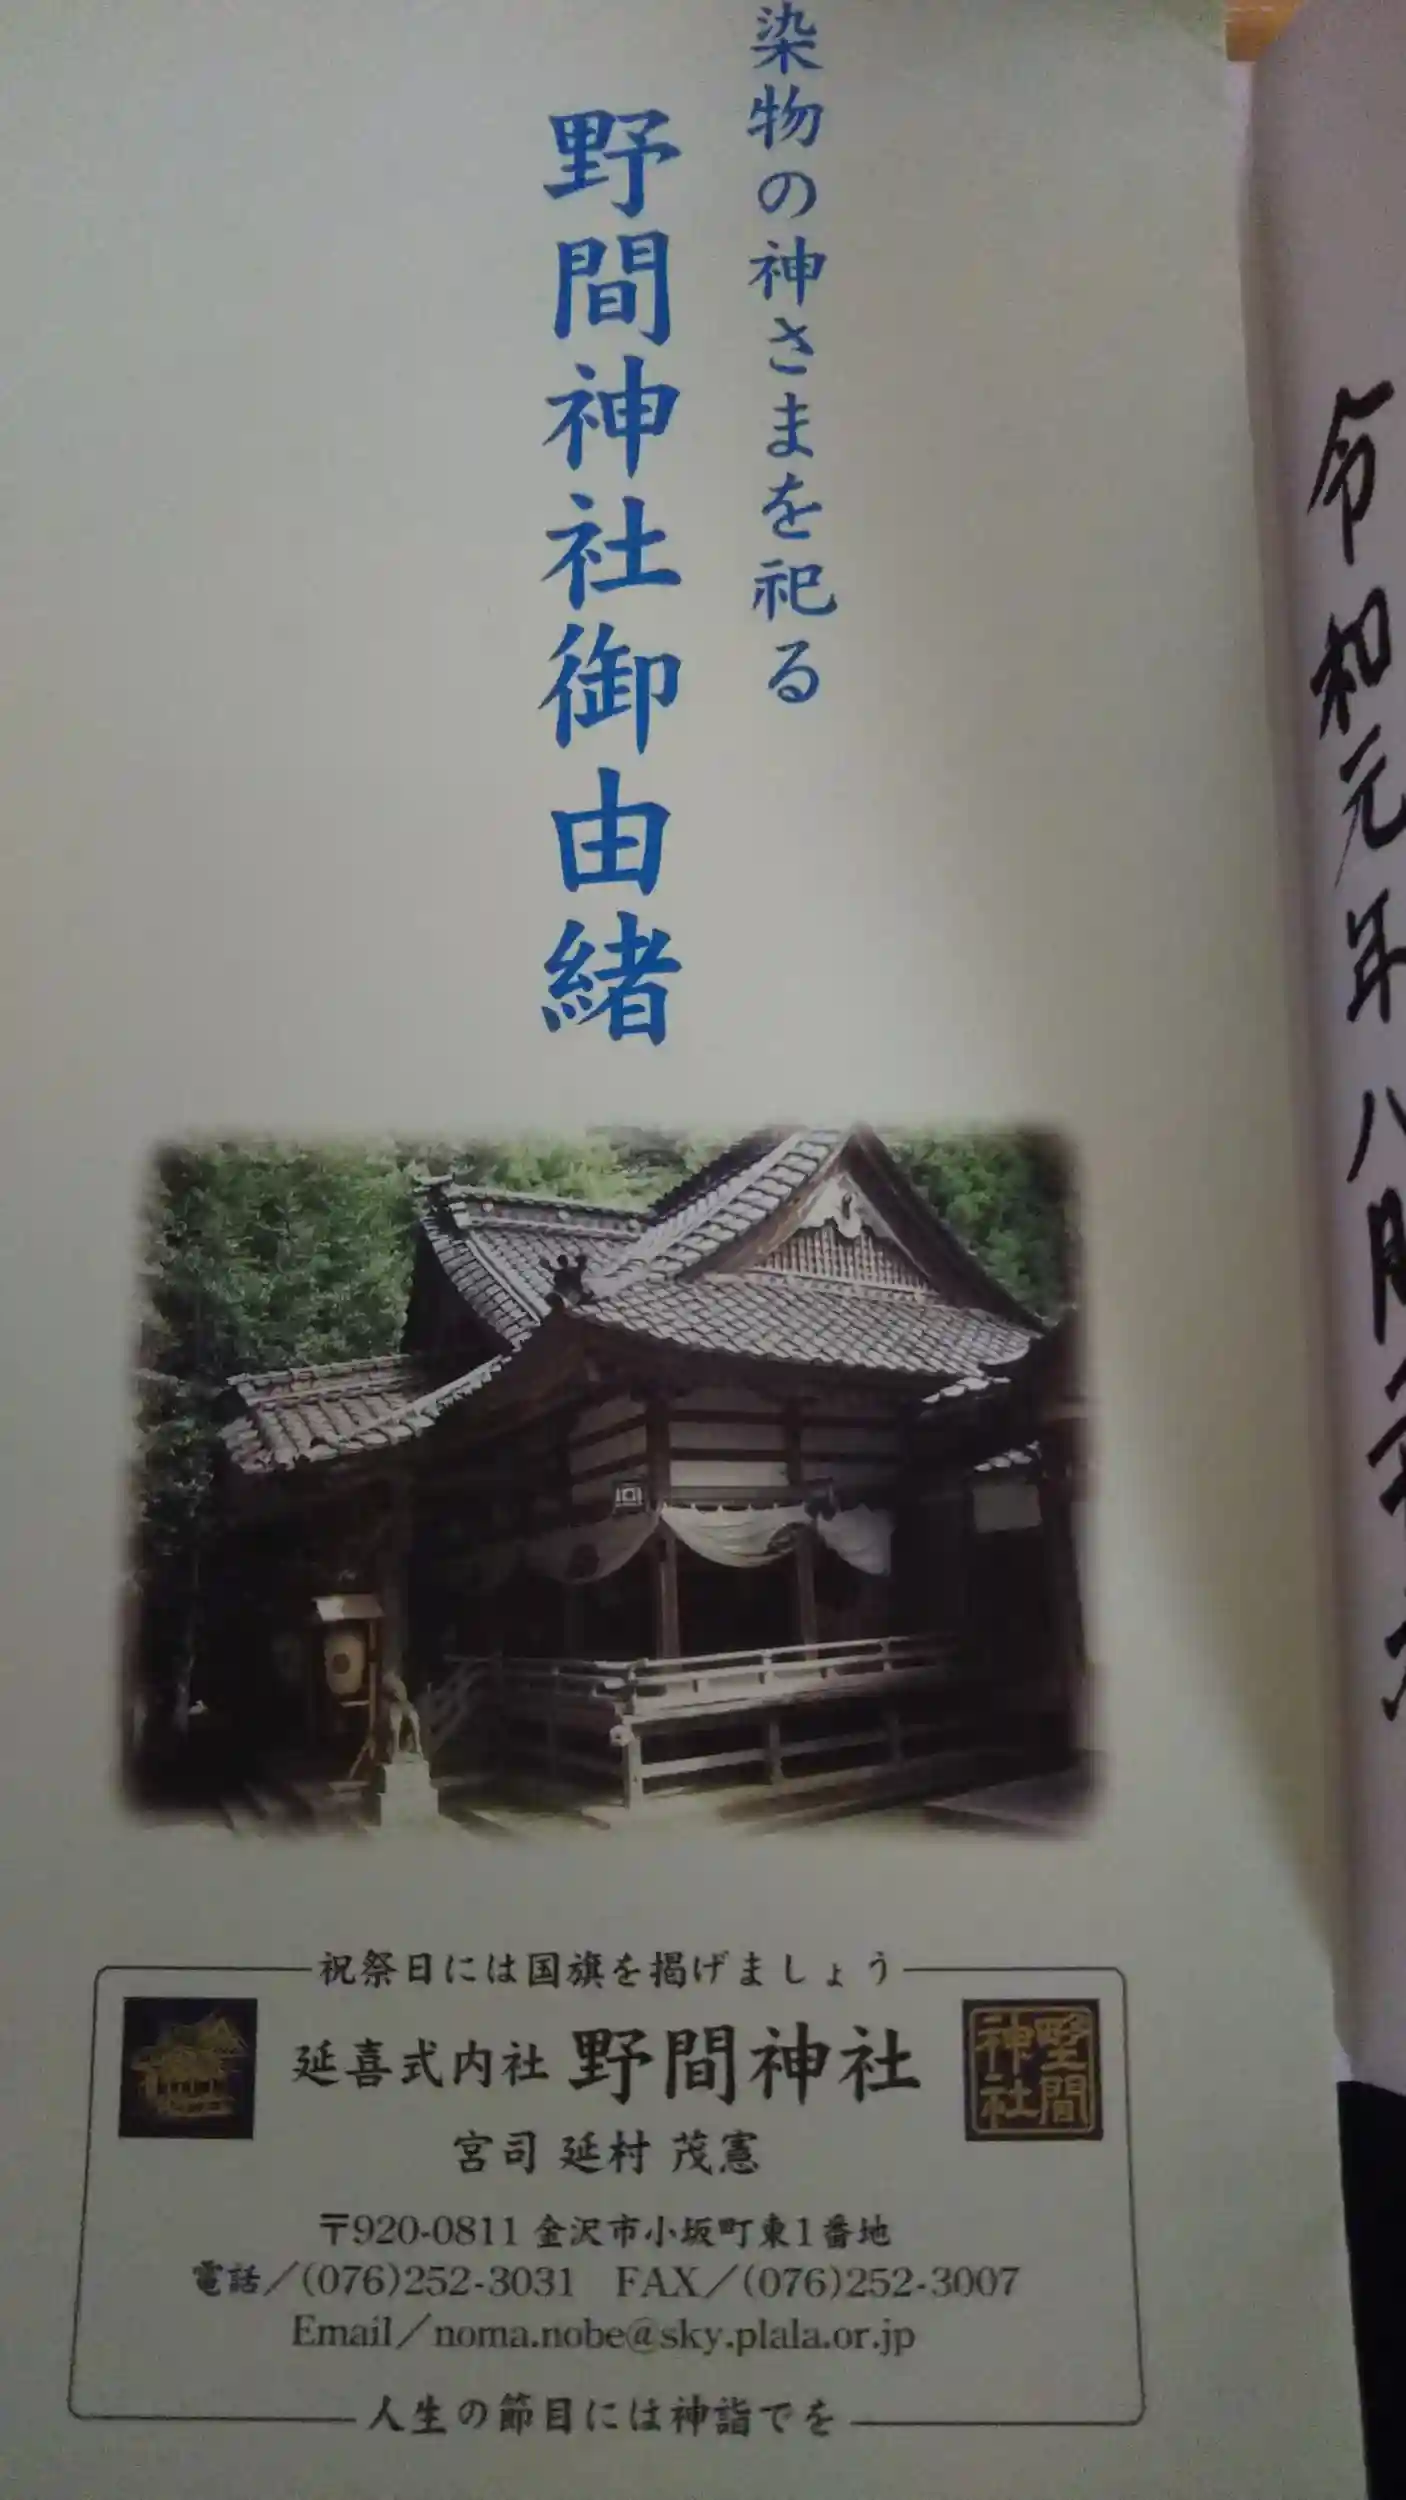 令和元年八月
染物の神さまを祀る
野間神社御由緒
祝祭日には国旗を掲げましょう
延喜式内社 野間神社
野間神社
宮司 延村 茂憲
〒920-0811 金沢市小坂町東1番地
電話/(076)252-3031 FAX/(076)252-3007
Email/noma.nobe@sky.plala.or.jp
人生の節目には神詣でを